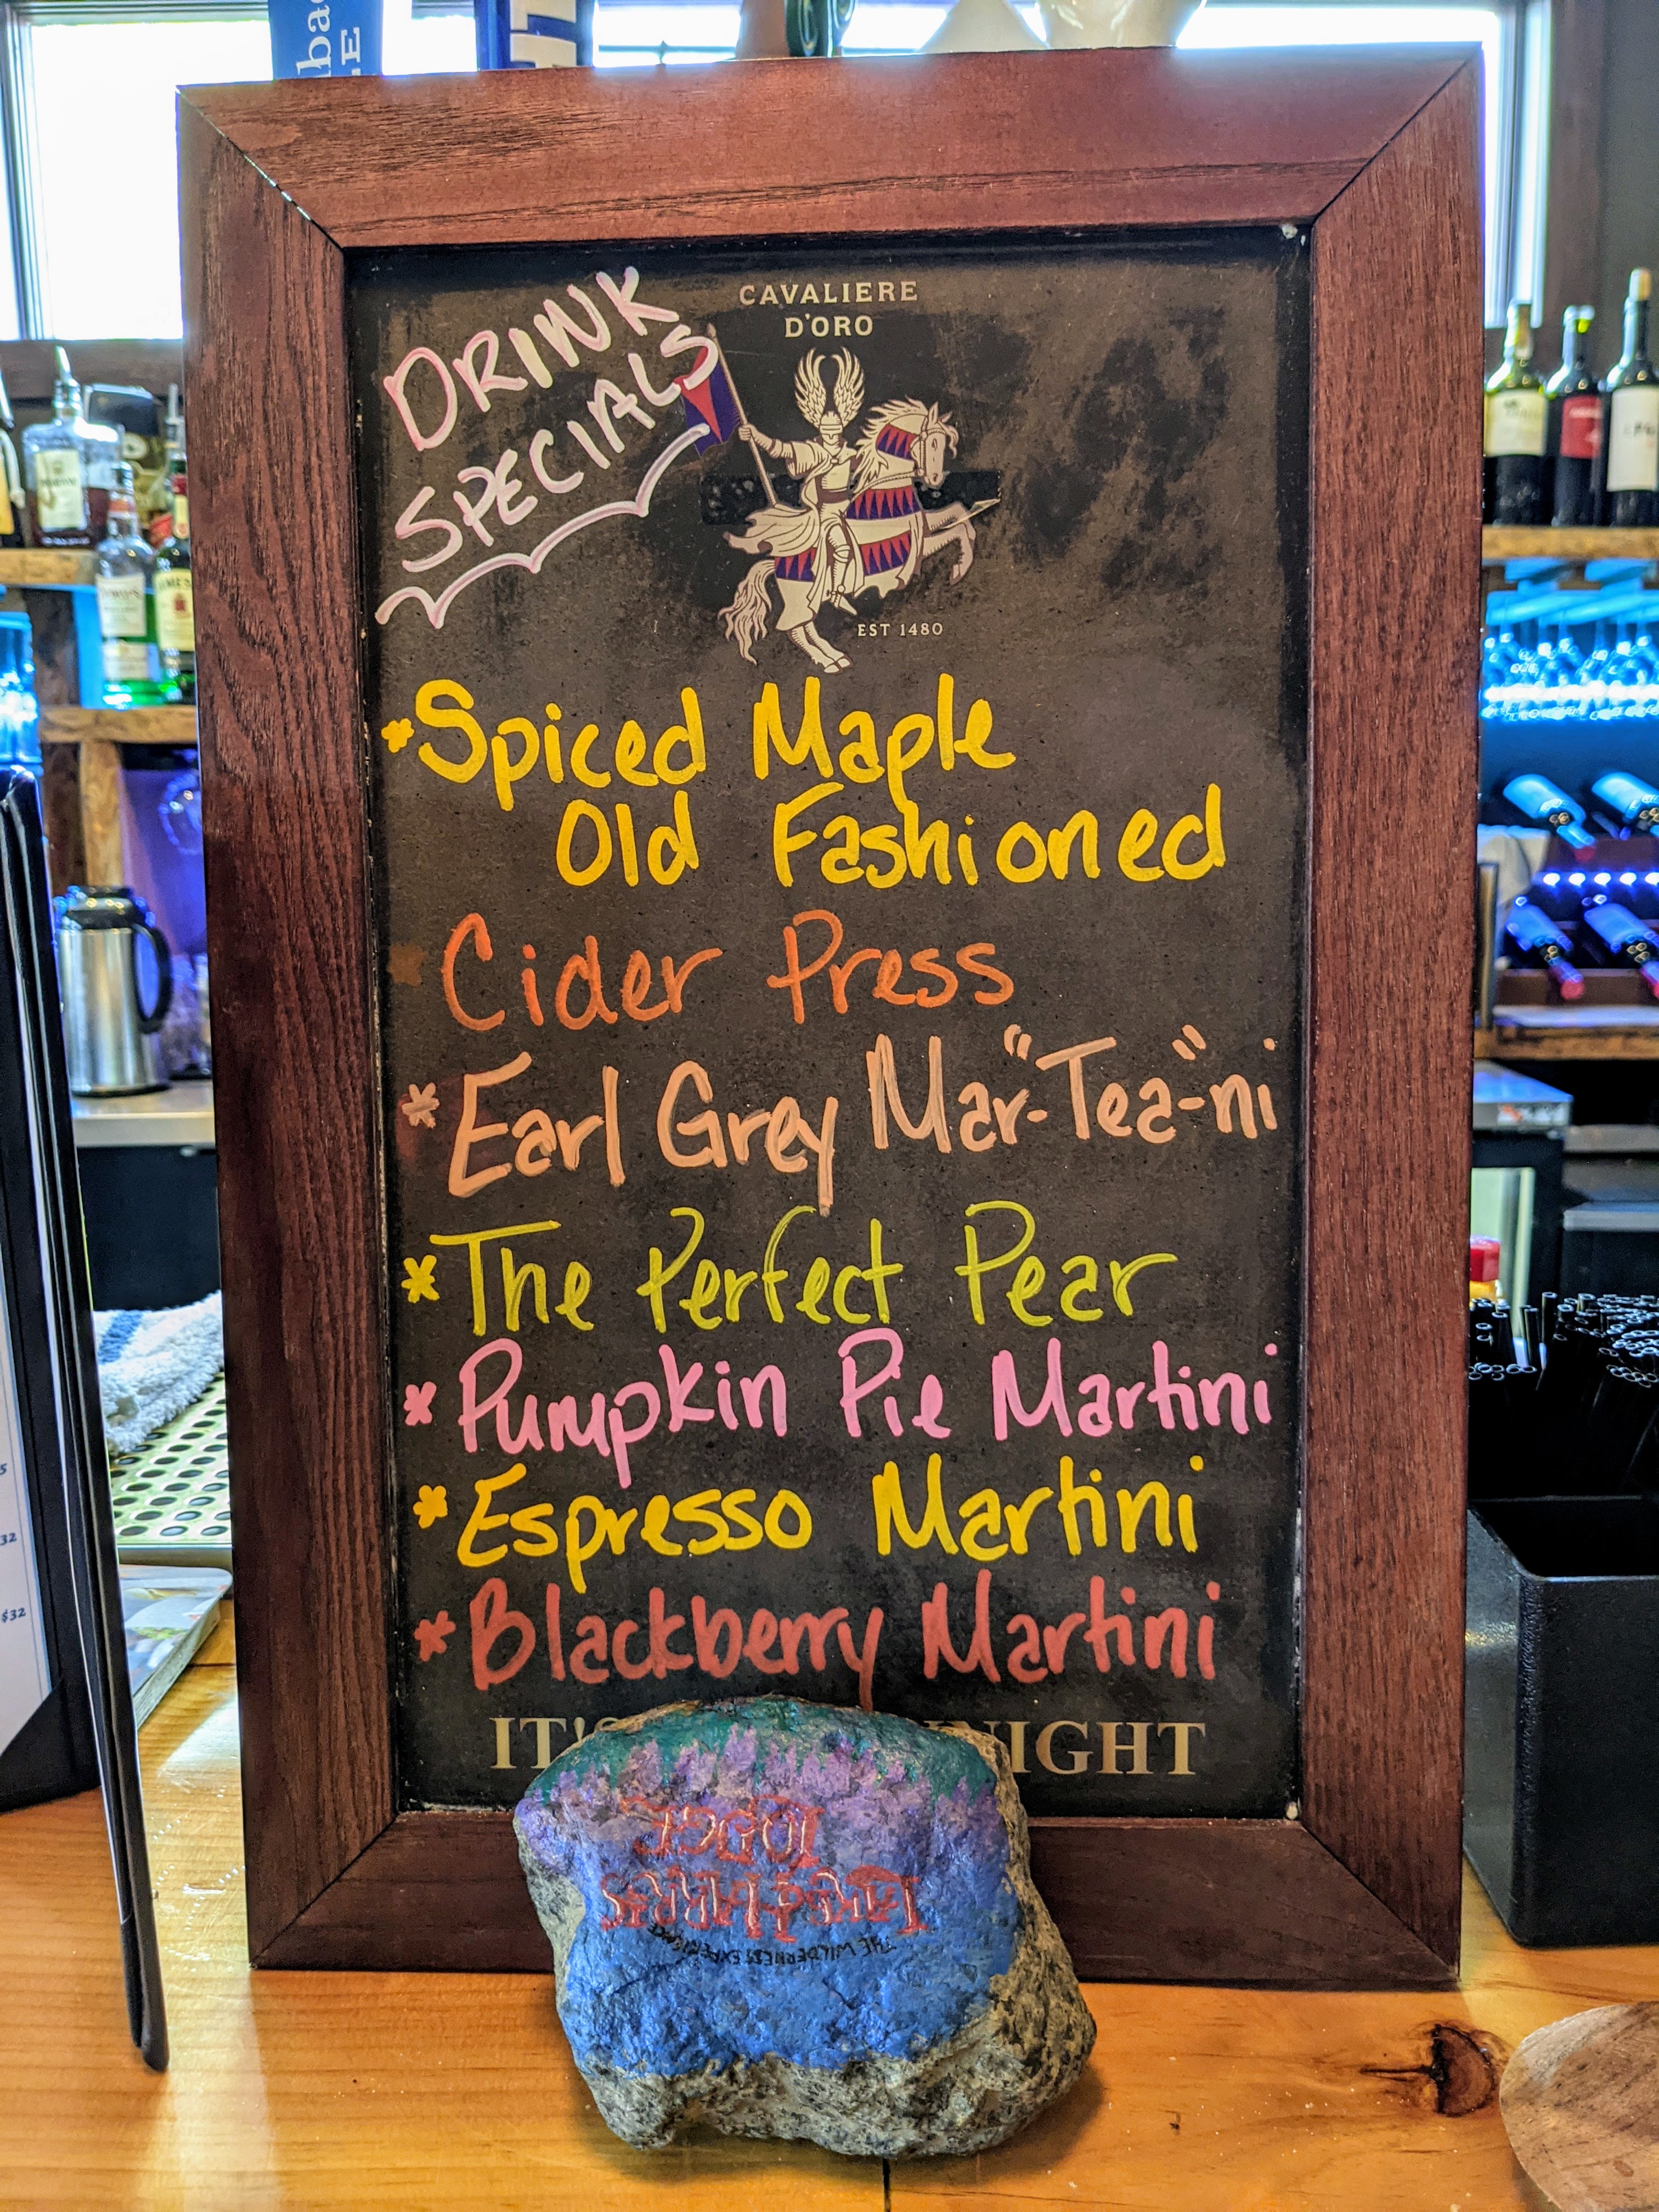 CAVALIERE
D'ORO
DRINK
SPECIALS
EST 1480
*Spiced Maple
Old Fashioned
Cider Press
*Earl Grey Mar-"Tea"-ni
*The Perfect Pear
*Pumpkin Pie Martini
*Espresso Martini
*Blackberry Martini
IT'S NIGHT
LODGE
THE WILDERNESS EXPERIENCE
$32
32